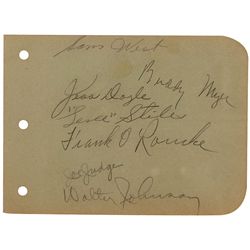 Sam West
Buddy Myer
Jess Doyle
"Lena" Stiles
Frank O'Rourke
Joe Judge
Walter Johnson